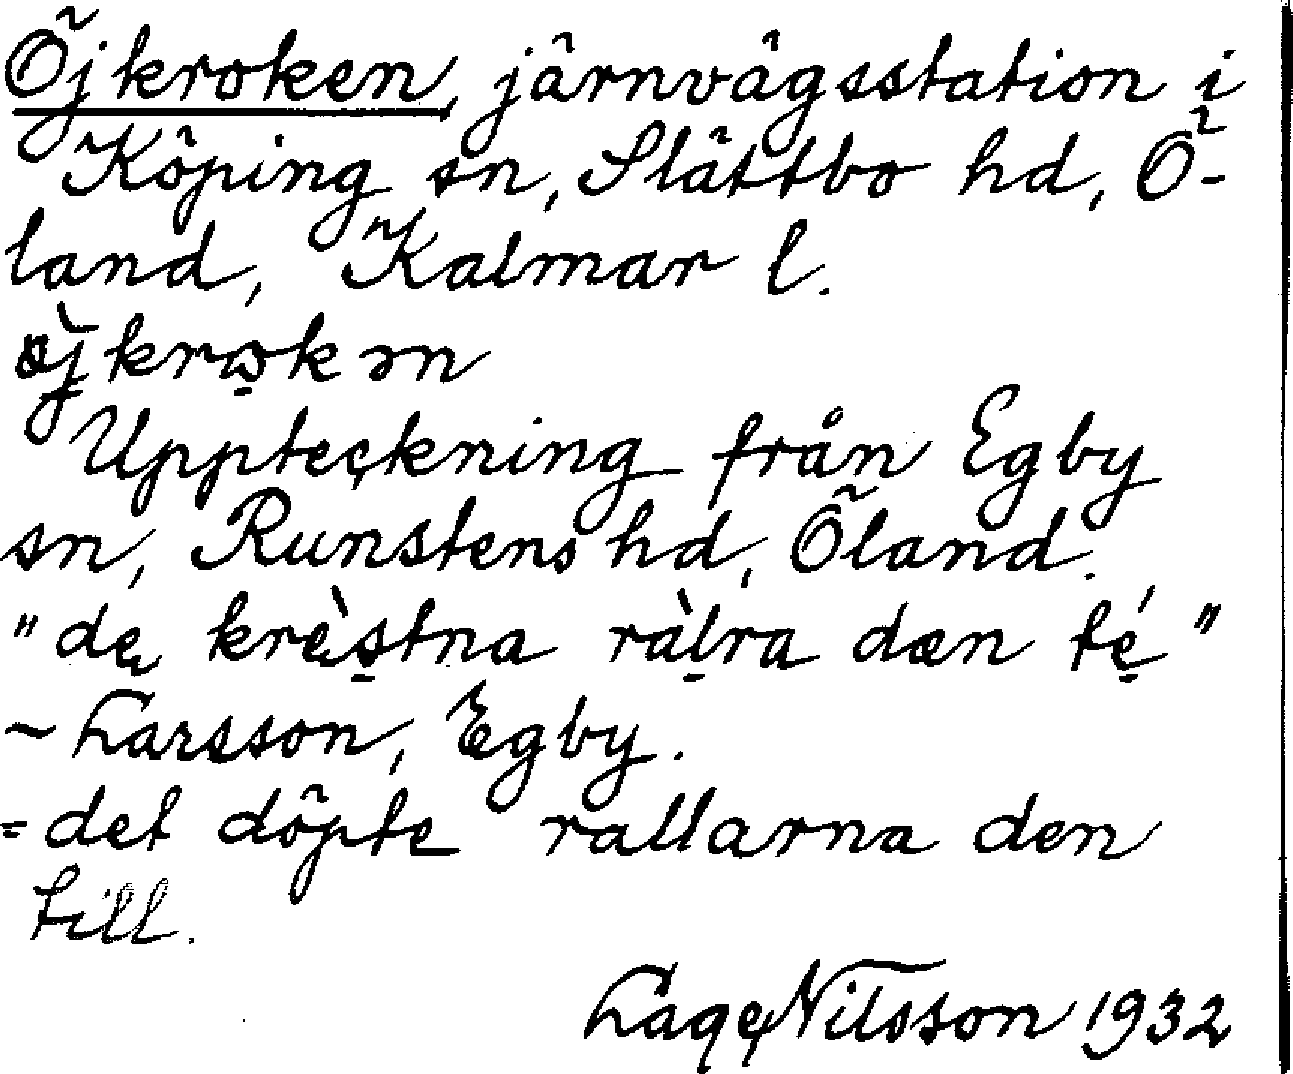 Öjkroken, järnvägsstation i
Köping sn, Slättbo hd, Ö-
land, Kalmar l.
Uppteckning från Egby
sn, Runstens hd, Öland.
"de krèstna ràlra dæn té"
~ Larsson, Egby.
= det döpte rallarna den
till.
Nilsson 1932